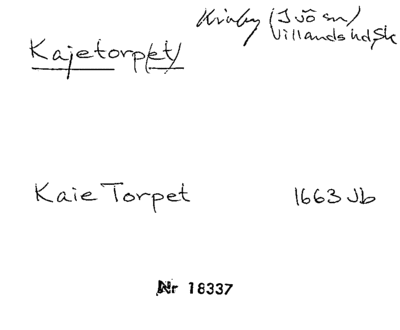 Kiaby (Ivö sn)
Villands hd, Sk
Kajetorp(et)
Kaie Torpet 1663 Jb
Nr 18337